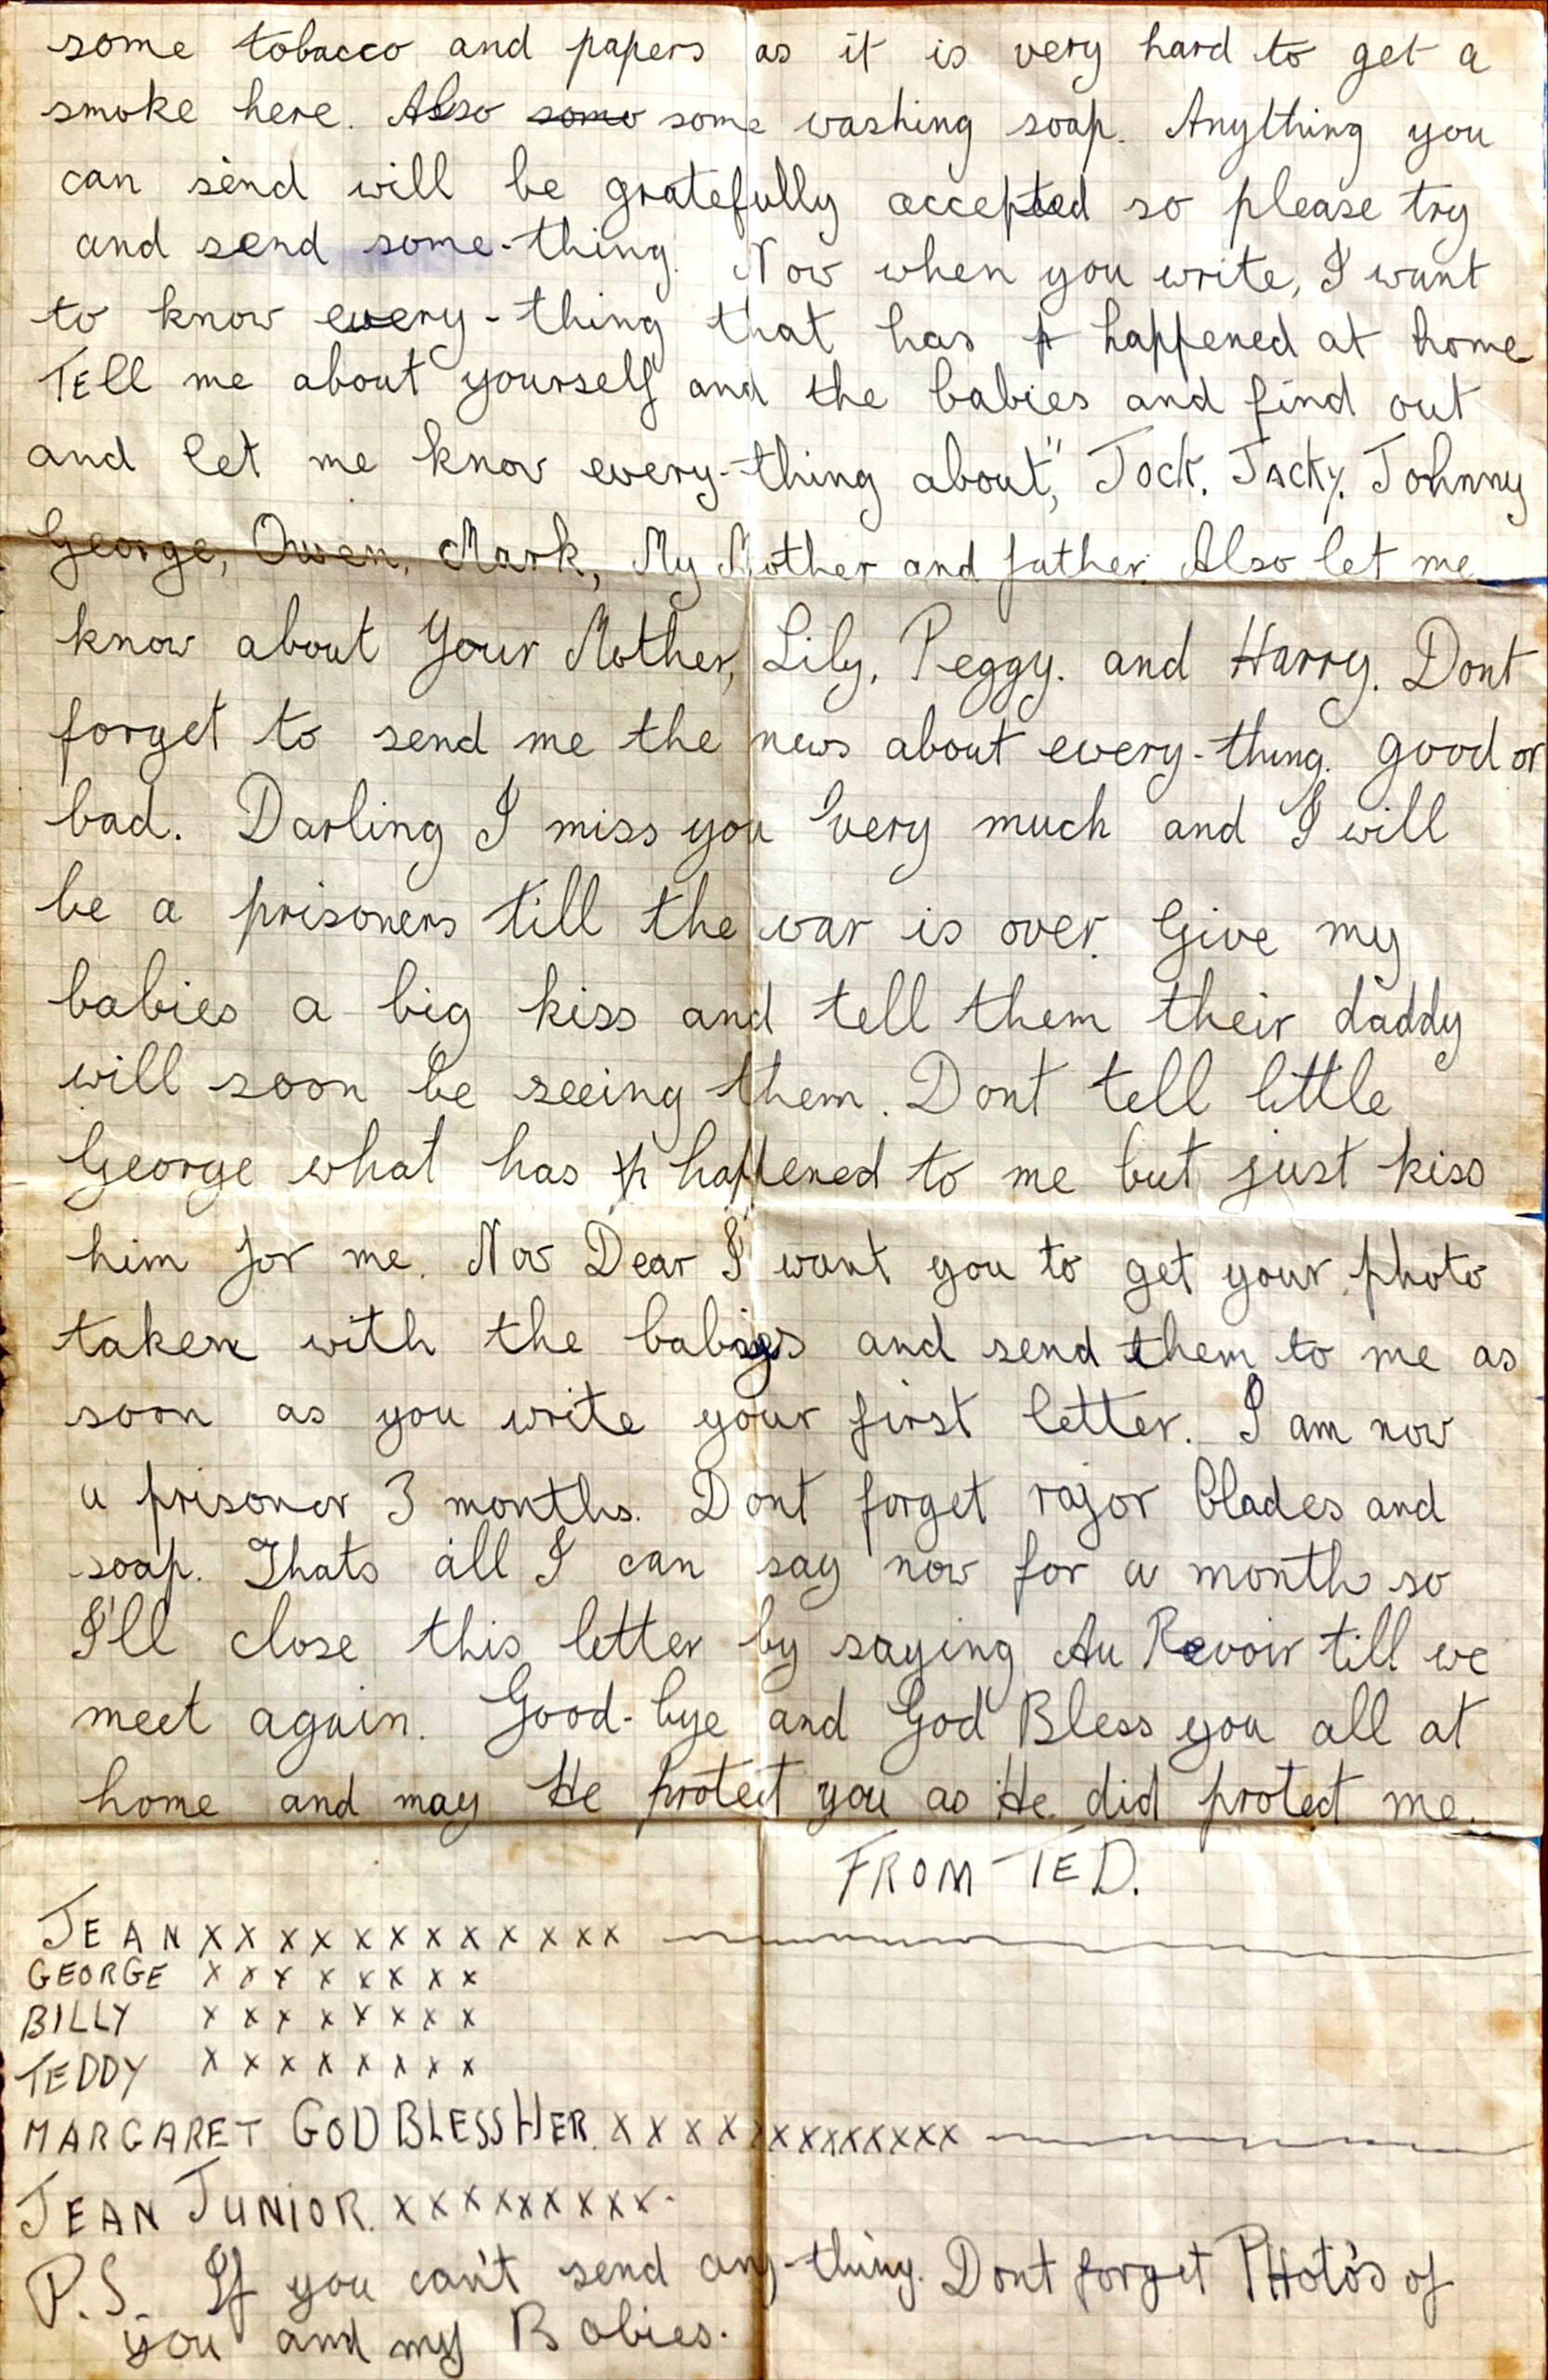 some tobacco and papers as it is very hard to get a
smoke here. Also some some washing soap. Anything you
can send will be gratefully accepted so please try
and send some-thing. Now when you write, I want
to know every-thing that has h happened at home
Tell me about yourself and the babies and find out
and let me know every-thing about," Jock. Jacky. Johnny
George, Owen, Mark, My Mother and father. Also let me
know about Your Mother, Lily, Peggy. and Harry. Dont
forget to send me the news about every-thing. good or
bad. Darling I miss you very much and I will
be a prisoners till the war is over. Give my
babies a big kiss and tell them their daddy
will soon be seeing them. Dont tell little
George what has h happened to me but just kiss
him for me. Now Dear I want you to get your photo
taken with the babies and send them to me as
soon as you write your first letter. I am now
a prisoner 3 months. Dont forget razor blades and
soap. Thats all I can say now for a month so
I'll close this letter by saying Au Revoir till we
meet again. Good-bye and God Bless you all at
home and may He protect you as He did protect me.
FROM TED.
JEAN X X X X X X X X X X X X
GEORGE X X X X X X X X
BILLY X X X X X X X X
TEDDY X X X X X X X X
MARGARET GOD BLESS HER. X X X X X X X X X X X X X
JEAN JUNIOR. X X X X X X X X X
P.S. If you can't send any-thing. Dont forget PHoto's of
you and my Babies.